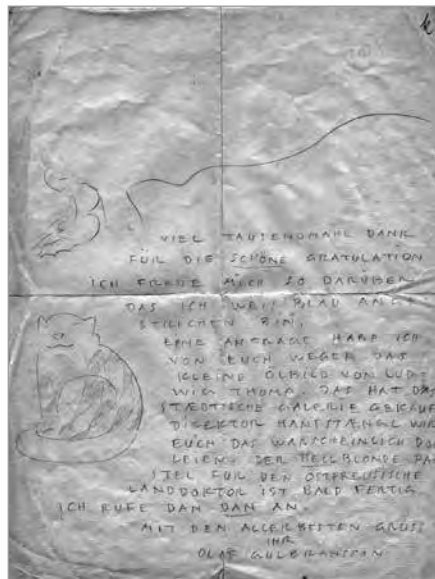 k
VIEL TAUSENDMAHL DANK
FÜR DIE SCHÖNE GRATULATION
ICH FREUE MICH SO DARÜBER
DAS ICH WEIS BLAU ANGE
STRICHEN BIN,
EINE ANFRAGE HABE ICH
VON EUCH WEGER DAS
KLEINE ÖLBILD VON LUD-
WIG THOMA. DAS HAT DAS
STÆDTISCHE GALERIE GEKAUF
DIREKTOR HANFSTÆNGL WIR
EUCH DAS WARSCHEINLICH DO
LEIEN. DER HELLBLONDE PA
STEL FÜR DEN OSTPREUSISCHE
LANDDOKTOR IST BALD FERTIG
ICH RUFE DAN DAN AN.
MIT DEN ALLERBESTEN GRUSS
IHR
OLAF GULBRANSSON